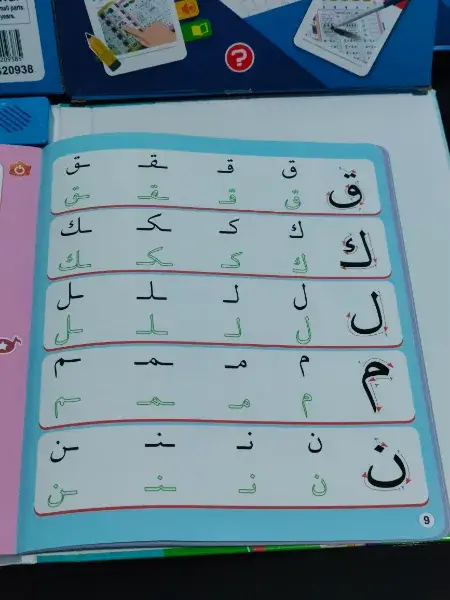 small parts.
years.
620938
?
ق ق قـ ـقـ ـق
ق قـ ـقـ ـق
ك ك كـ ـكـ ـك
ك كـ ـكـ ـك
ل ل لـ ـلـ ـل
ل لـ ـلـ ـل
م م مـ ـمـ ـم
م مـ ـمـ ـم
ن ن نـ ـنـ ـن
ن نـ ـنـ ـن
9